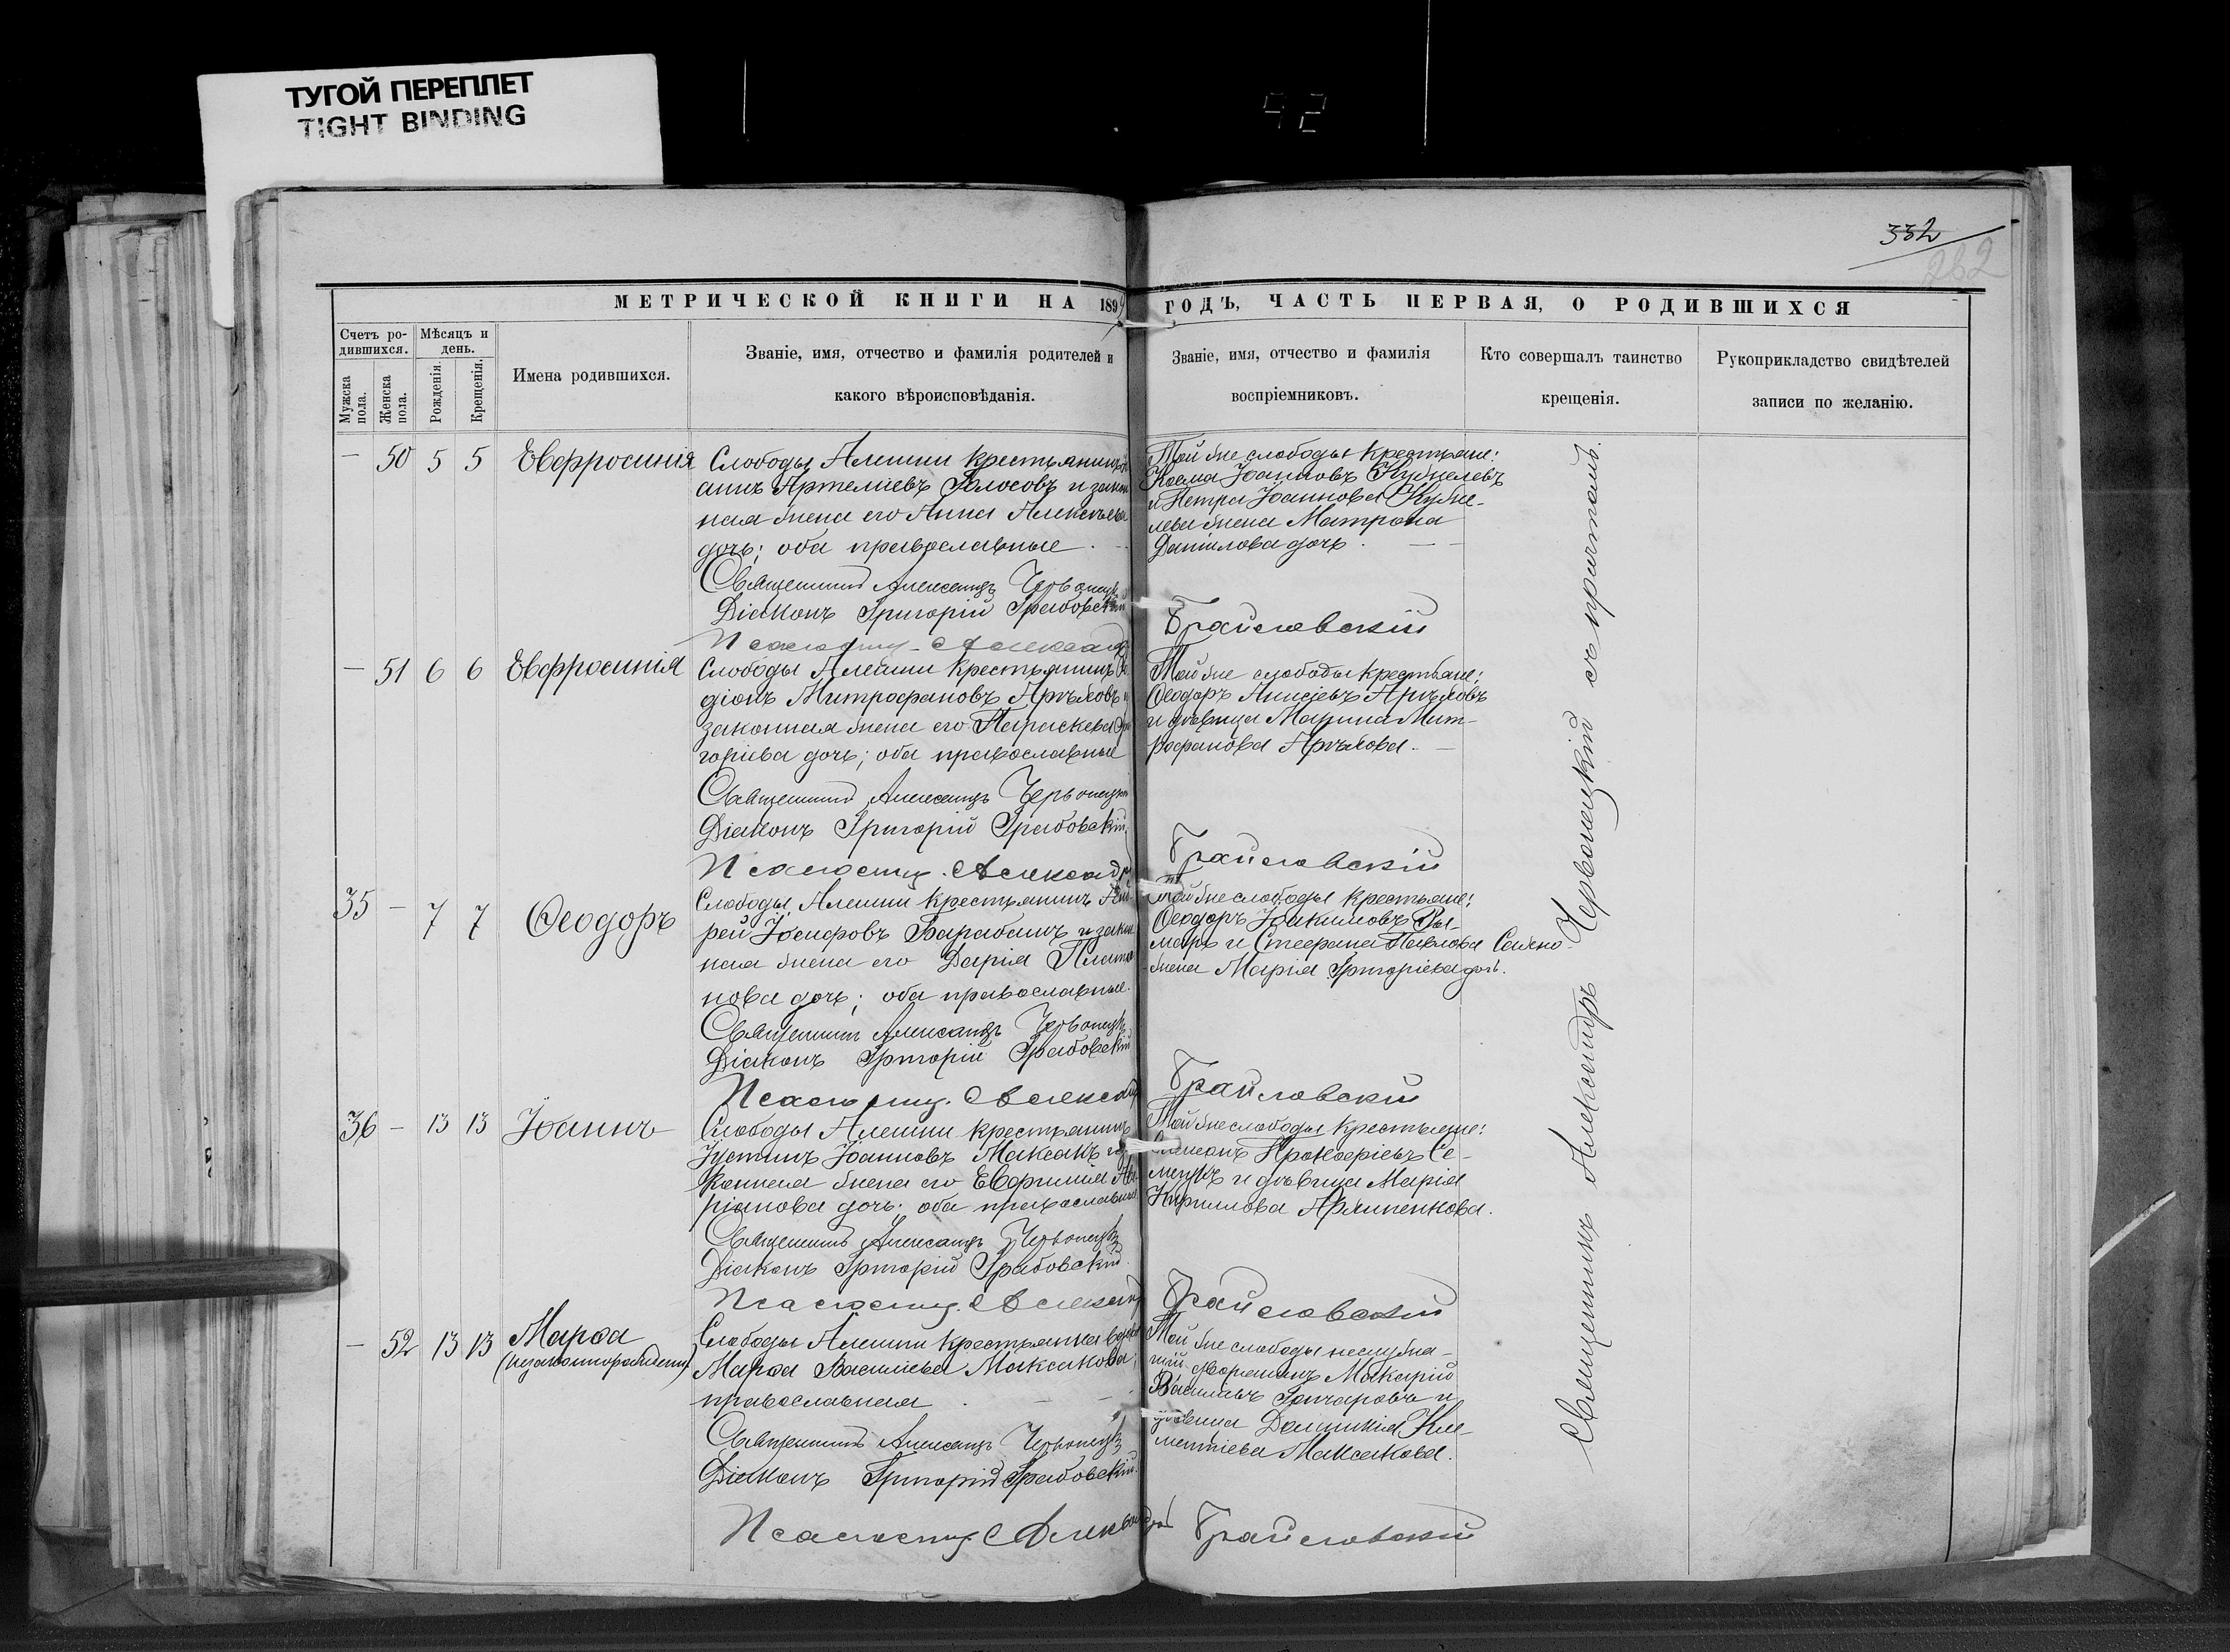 ТУГОЙ ПЕРЕПЛЕТ
TIGHT BINDING
92
332
262
МЕТРИЧЕСКОЙ КНИГИ НА 189 ГОДЪ, ЧАСТЬ ПЕРВАЯ, О РОДИВШИХСЯ
Счетъ ро-
дившихся.
Мѣсяцъ и
день.
Мужска
пола.
Женска
пола.
Рожденія.
Крещенія.
Имена родившихся.
Званіе, имя, отчество и фамилія родителей и
какого вѣроисповѣданія.
Званіе, имя, отчество и фамилія
воспріемниковъ.
Кто совершалъ таинство
крещенія.
Рукоприкладство свидѣтелей
записи по желанію.
— 50 5 5 Евфросинія
Слободы Алешни крестьянинъ
Артеміевъ Голосовъ и закон
ная жена его Анна Алексѣева
дочь; оба православные.
Священникъ Александръ Червонецк
Діаконъ Григорій Грабовскій
Псаломщ. Александр
Той же слободы крестьяне:
Косма Іоанновъ Кубцелевъ
и Петра Іоаннова Кубце-
лева жена Матрона
Даніилова дочь.
Грайловскій
— 51 6 6 Евфросинія
Слободы Алешни крестьянинъ
діонъ Митрофановъ Арѣховъ и
законная жена его Параскева Гри
горіева дочь; оба православные
Священникъ Александръ Червонецкі
Діаконъ Григорій Грабовскій.
Псаломщ. Александр
Той же слободы крестьяне:
Ѳеодоръ Анисіевъ Арѣховъ
и дѣвица Марина Мит-
рофанова Арѣхова.
Грайловскій
35 — 7 7 Ѳеодоръ
Слободы Алешни крестьянинъ Анд-
рей Іосифовъ Барабашъ и закон
ная жена его Дарія Плато
нова дочь; оба православные.
Священникъ Александръ Червонецк
Діаконъ Григорій Грабовскій
Псаломщ. Александр
Той же слободы крестьяне:
Ѳеодоръ Іоакимовъ Ры-
марь и Стефана Павлова
жена Марія Григоріева дочь.
Грайловскій
36 — 13 13 Іоаннъ
Слободы Алешни крестьянинъ
Іустинъ Іоанновъ Максакъ и за
конная жена его Евфимія Ад
ріанова дочь; оба православные
Священникъ Александръ Червонецк
Діаконъ Григорій Грабовскій.
Псаломщ. Александр
Той же слободы крестьяне:
Прокофіевъ Се-
и дѣвица Марія
Кириллова Архипенкова.
Грайловскій
— 52 13 13 Марѳа
(незаконнорожденная)
Слободы Алешни крестьянка вдова
Марѳа Васильева Максакова;
православная
Священникъ Александръ Червонецк
Діаконъ Григорій Грабовскій.
Псаломщ. Александръ
Той же слободы неслужа-
щій дворянинъ Макарій
Васильевъ Гончаровъ и
дѣвица Домникія Кле-
ментіева Максакова.
Грайловскій
Священникъ Александръ Червонецкій съ причтомъ.